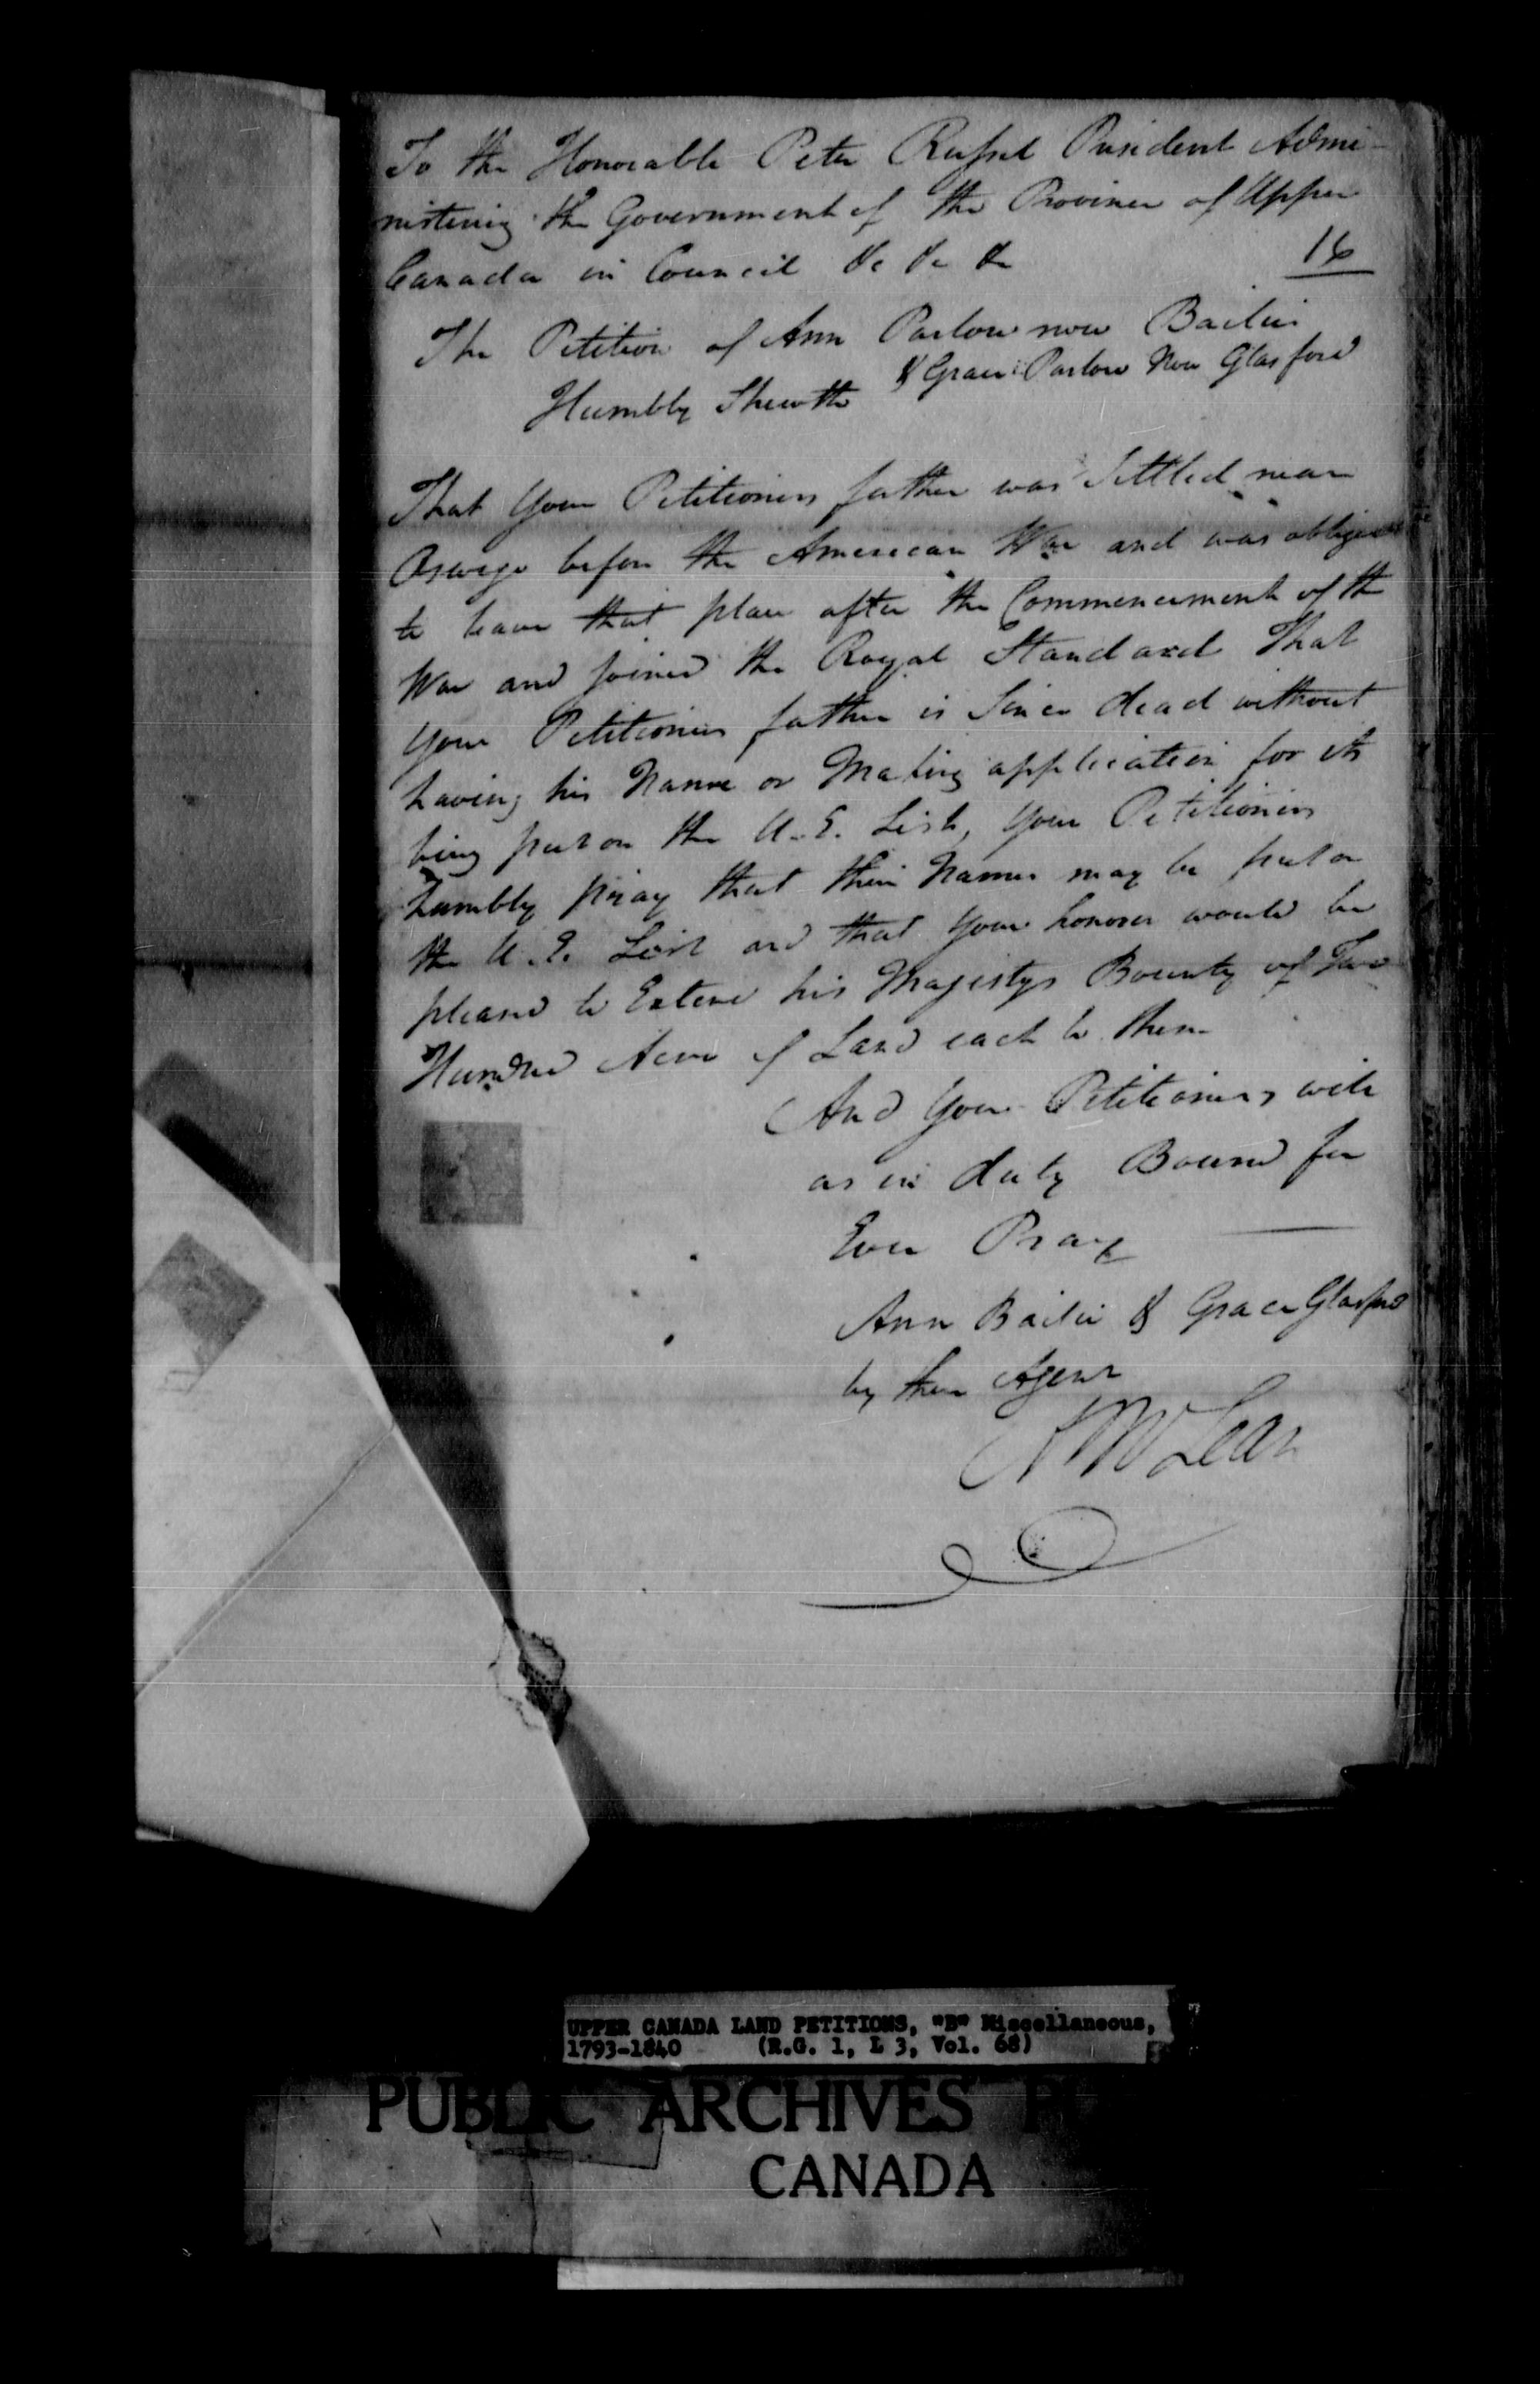 To the Honorable Peter Russel President Admi-
nistering the Government of the Province of Upper
Canada in Council &c &c &c
16
The Petition of Ann Parlow now Bailie
& Grace Parlow Now Glasford
Humbly Sheweth
That Your Petitioners father was Settled near
Oswego before the American War and was obliged
to leave that place after the Commencement of the
War and joined the Royal Standard That
Your Petitioners father is Since dead without
having his Name or Making application for its
being put on the U.E. List, Your Petitioners
humbly pray that their Names may be put on
the U.E. List and that Your honors would be
pleased to Extend his Majestys Bounty of Two
Hundred Acres of Land each to them
And Your Petitioners will
as in duty Bound for
Ever Pray
Ann Bailie & Grace Glasford
by their Agent
McLean
UPPER CANADA LAND PETITIONS, "B" Miscellaneous,
1793-1840 (R.G. 1, L 3, Vol. 68)
PUBLIC ARCHIVES P
CANADA